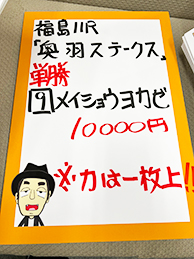 福島11R
「奥羽ステークス」
単勝
9メイショウヨカビ
10000円
※力は一枚上!!